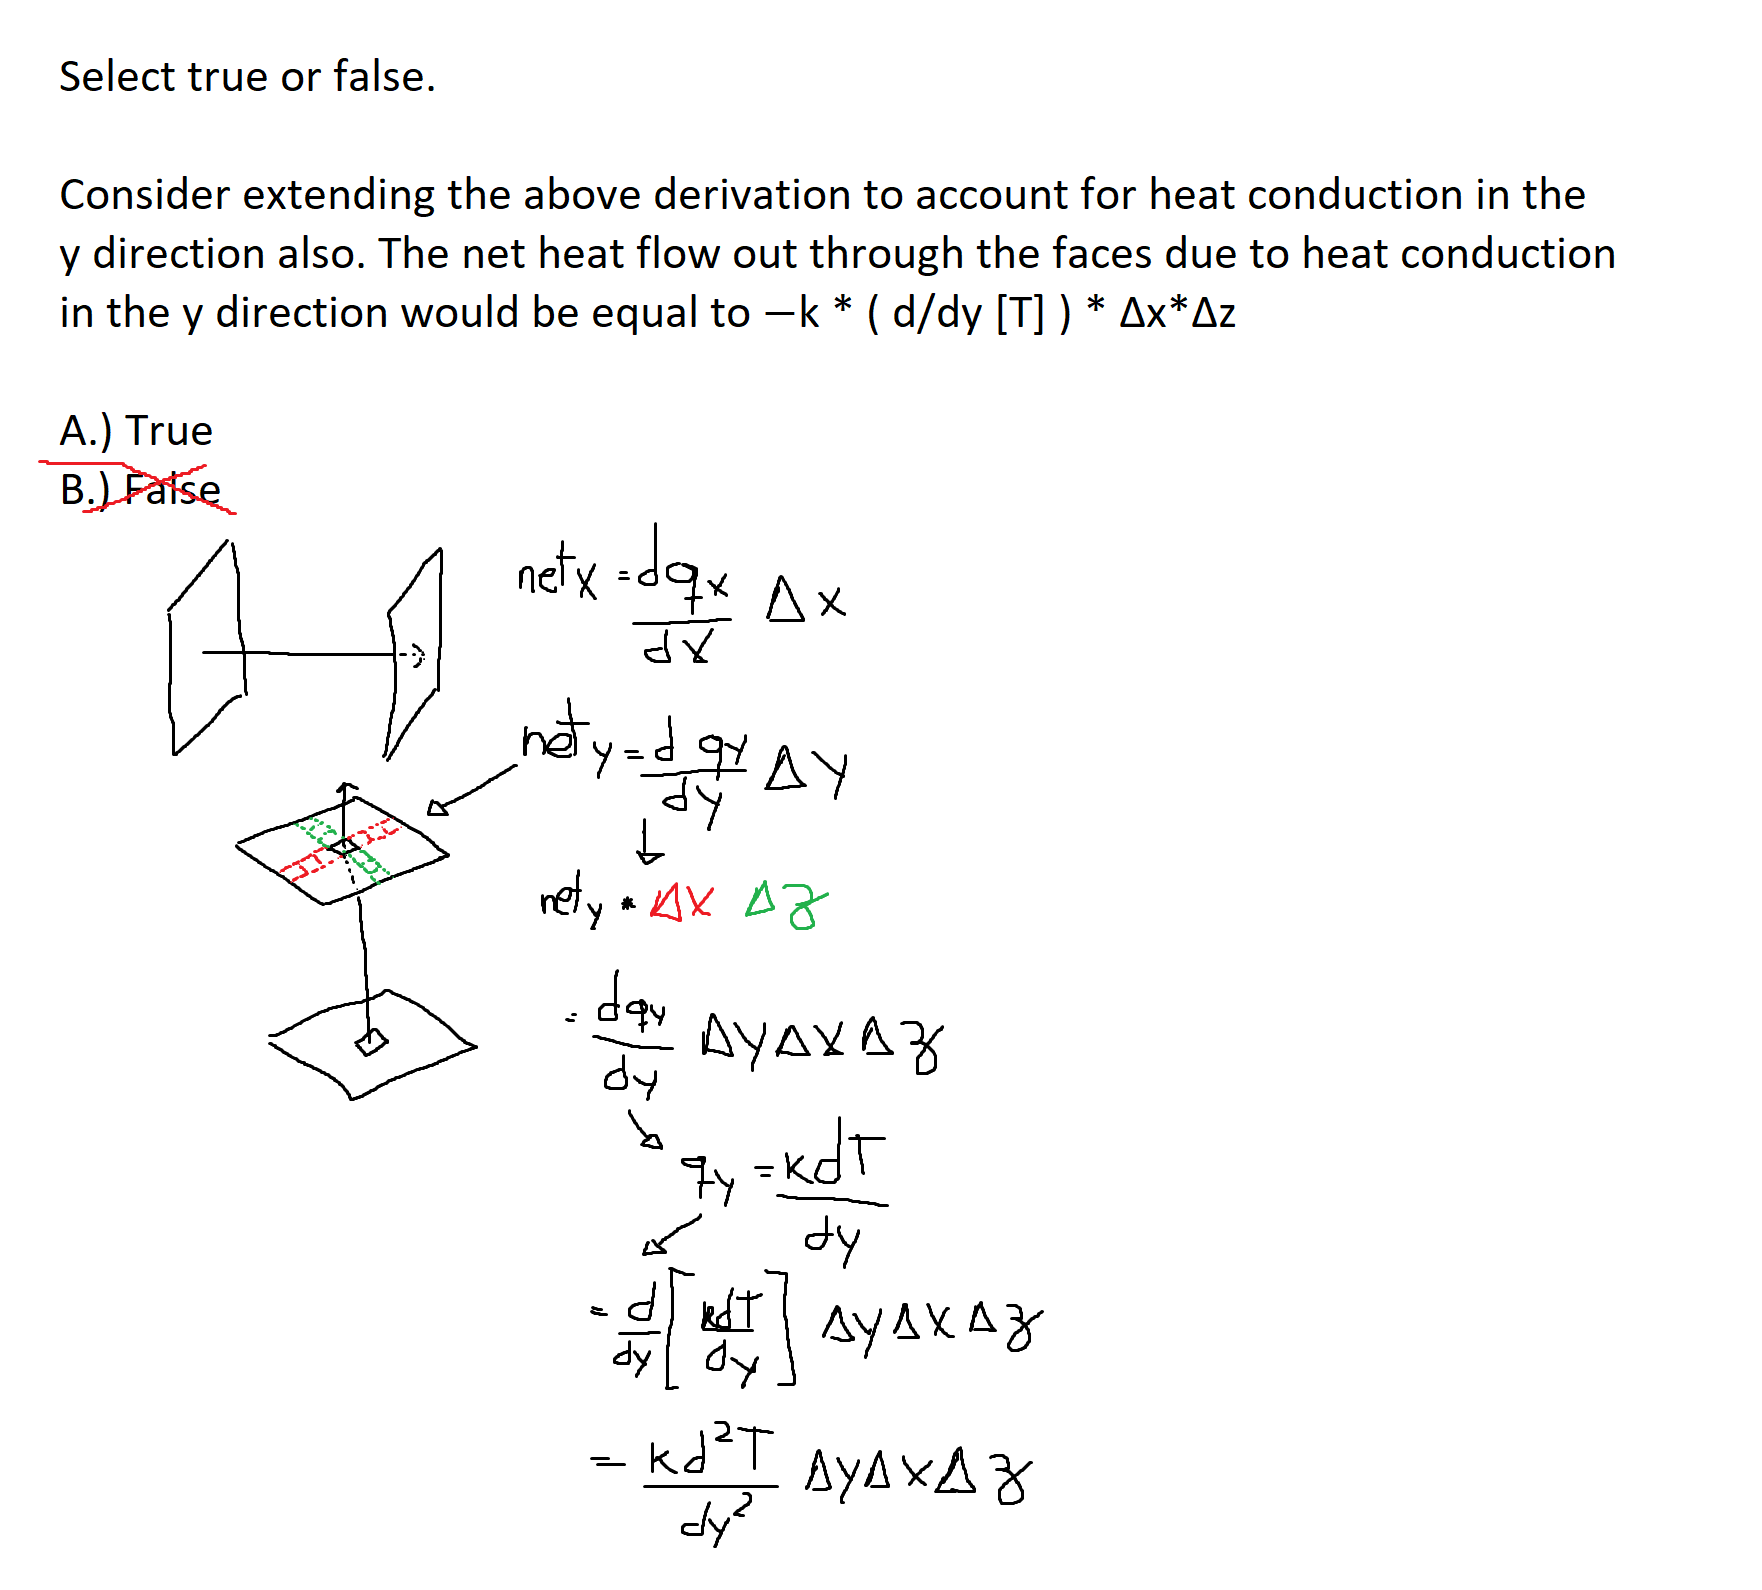 Select true or false.
Consider extending the above derivation to account for heat conduction in the
y direction also. The net heat flow out through the faces due to heat conduction
in the y direction would be equal to −k * ( d/dy [T] ) * Δx*Δz
A.) True
B.) False
netx = dqx/dx Δx
nety = dqy/dy Δy
nety * Δx Δz
= dqy/dy ΔyΔxΔz
qy = kdT/dy
= d/dy [kdT/dy] ΔyΔxΔz
= kd²T/dy² ΔyΔxΔz